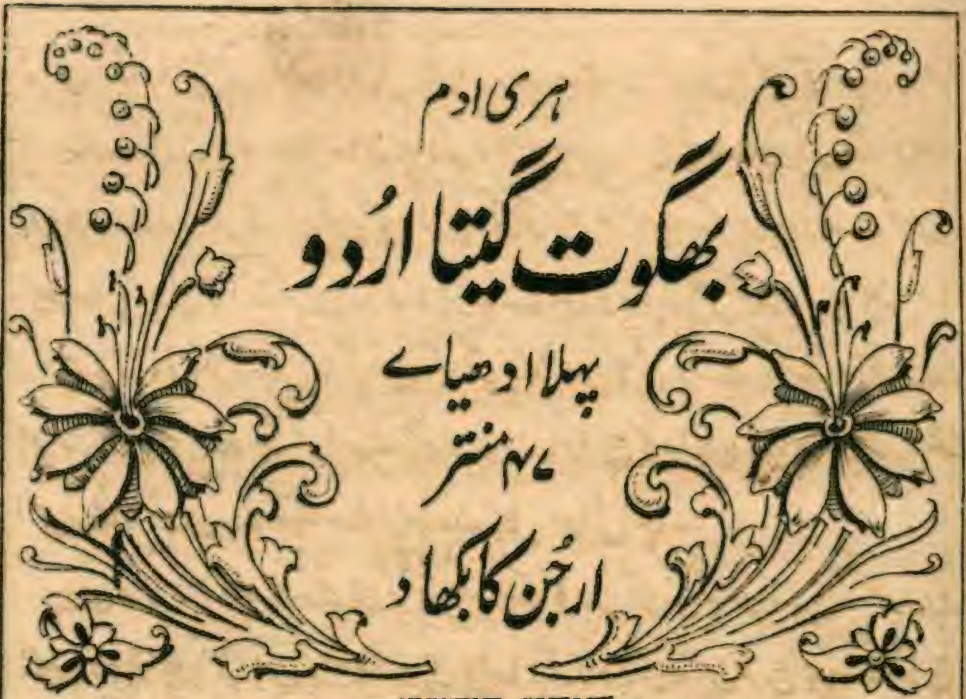 ہری اوم
بھگوت گیتا اُردو
پہلا ادھیائے
۴۷ منتر
ارجُن کا بکھاد